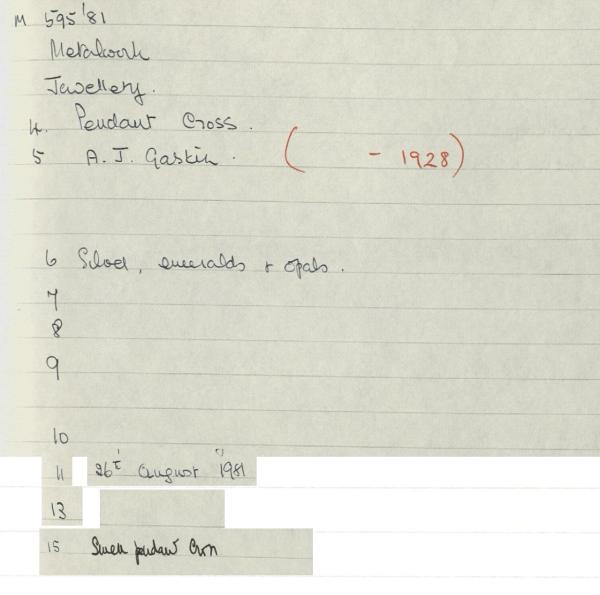 M 595'81
Metalwork
Jewellery.
4. Pendant Cross.
5 A. J. Gaskin. ( - 1928)
6 Silver, emeralds & opals.
7
8
9
10
11 26t August 1981
13
15 Silver pendant Cross